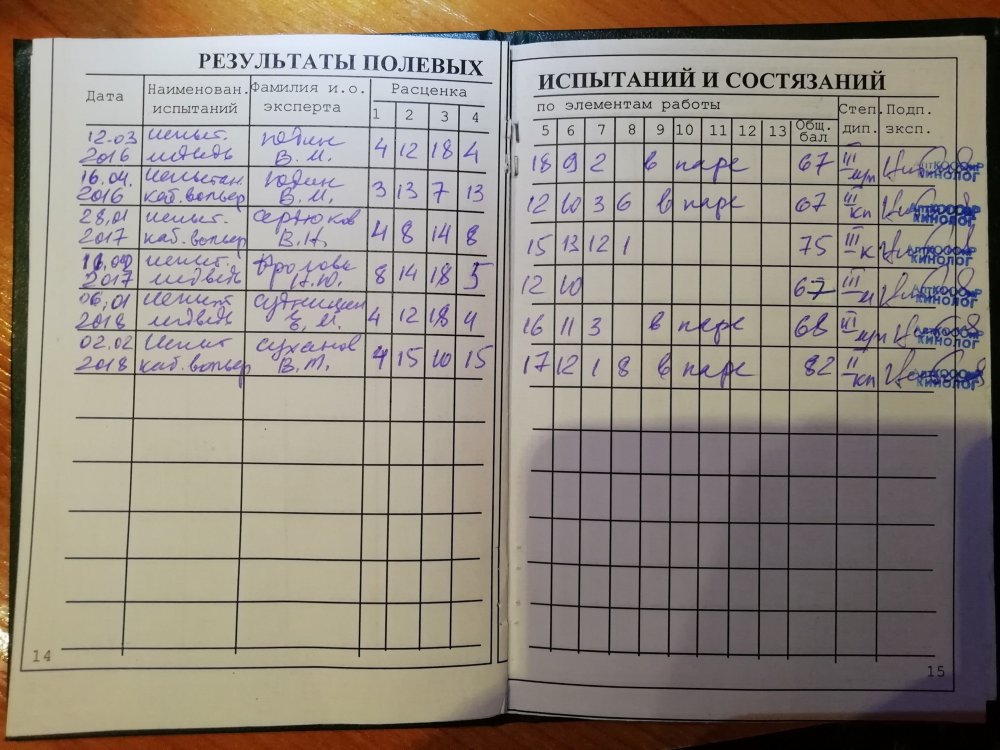 РЕЗУЛЬТАТЫ ПОЛЕВЫХ
Дата Наименован. испытаний Фамилия и.о. эксперта Расценка
1 2 3 4
12.03 2016 испыт. медведь Юдин В.М. 4 12 18 4
16.04. 2016 испытан. каб. вольер Юдин В.М. 3 13 7 13
28.01 2017 испыт. каб. вольер Сердюков В.Н. 4 8 14 8
2017 испыт. медведь Фролова Н.Ю. 8 14 18 5
06.01 2018 испыт медведь В.М. 4 12 18 4
02.02 2018 испыт каб. вольер Суханов В.Т. 4 15 10 15
14
ИСПЫТАНИЙ И СОСТЯЗАНИЙ
по элементам работы Степ. дип. Подп. эксп.
5 6 7 8 9 10 11 12 13 Общ. бал
18 9 2 в паре 67 III мп КИНОЛОГ
12 10 3 6 в паре 67 III кп КИНОЛОГ
15 13 12 1 75 III к КИНОЛОГ
12 10 67 III м КИНОЛОГ
16 11 3 в паре 68 III мп КИНОЛОГ
17 12 1 8 в паре 82 II кп КИНОЛОГ
15